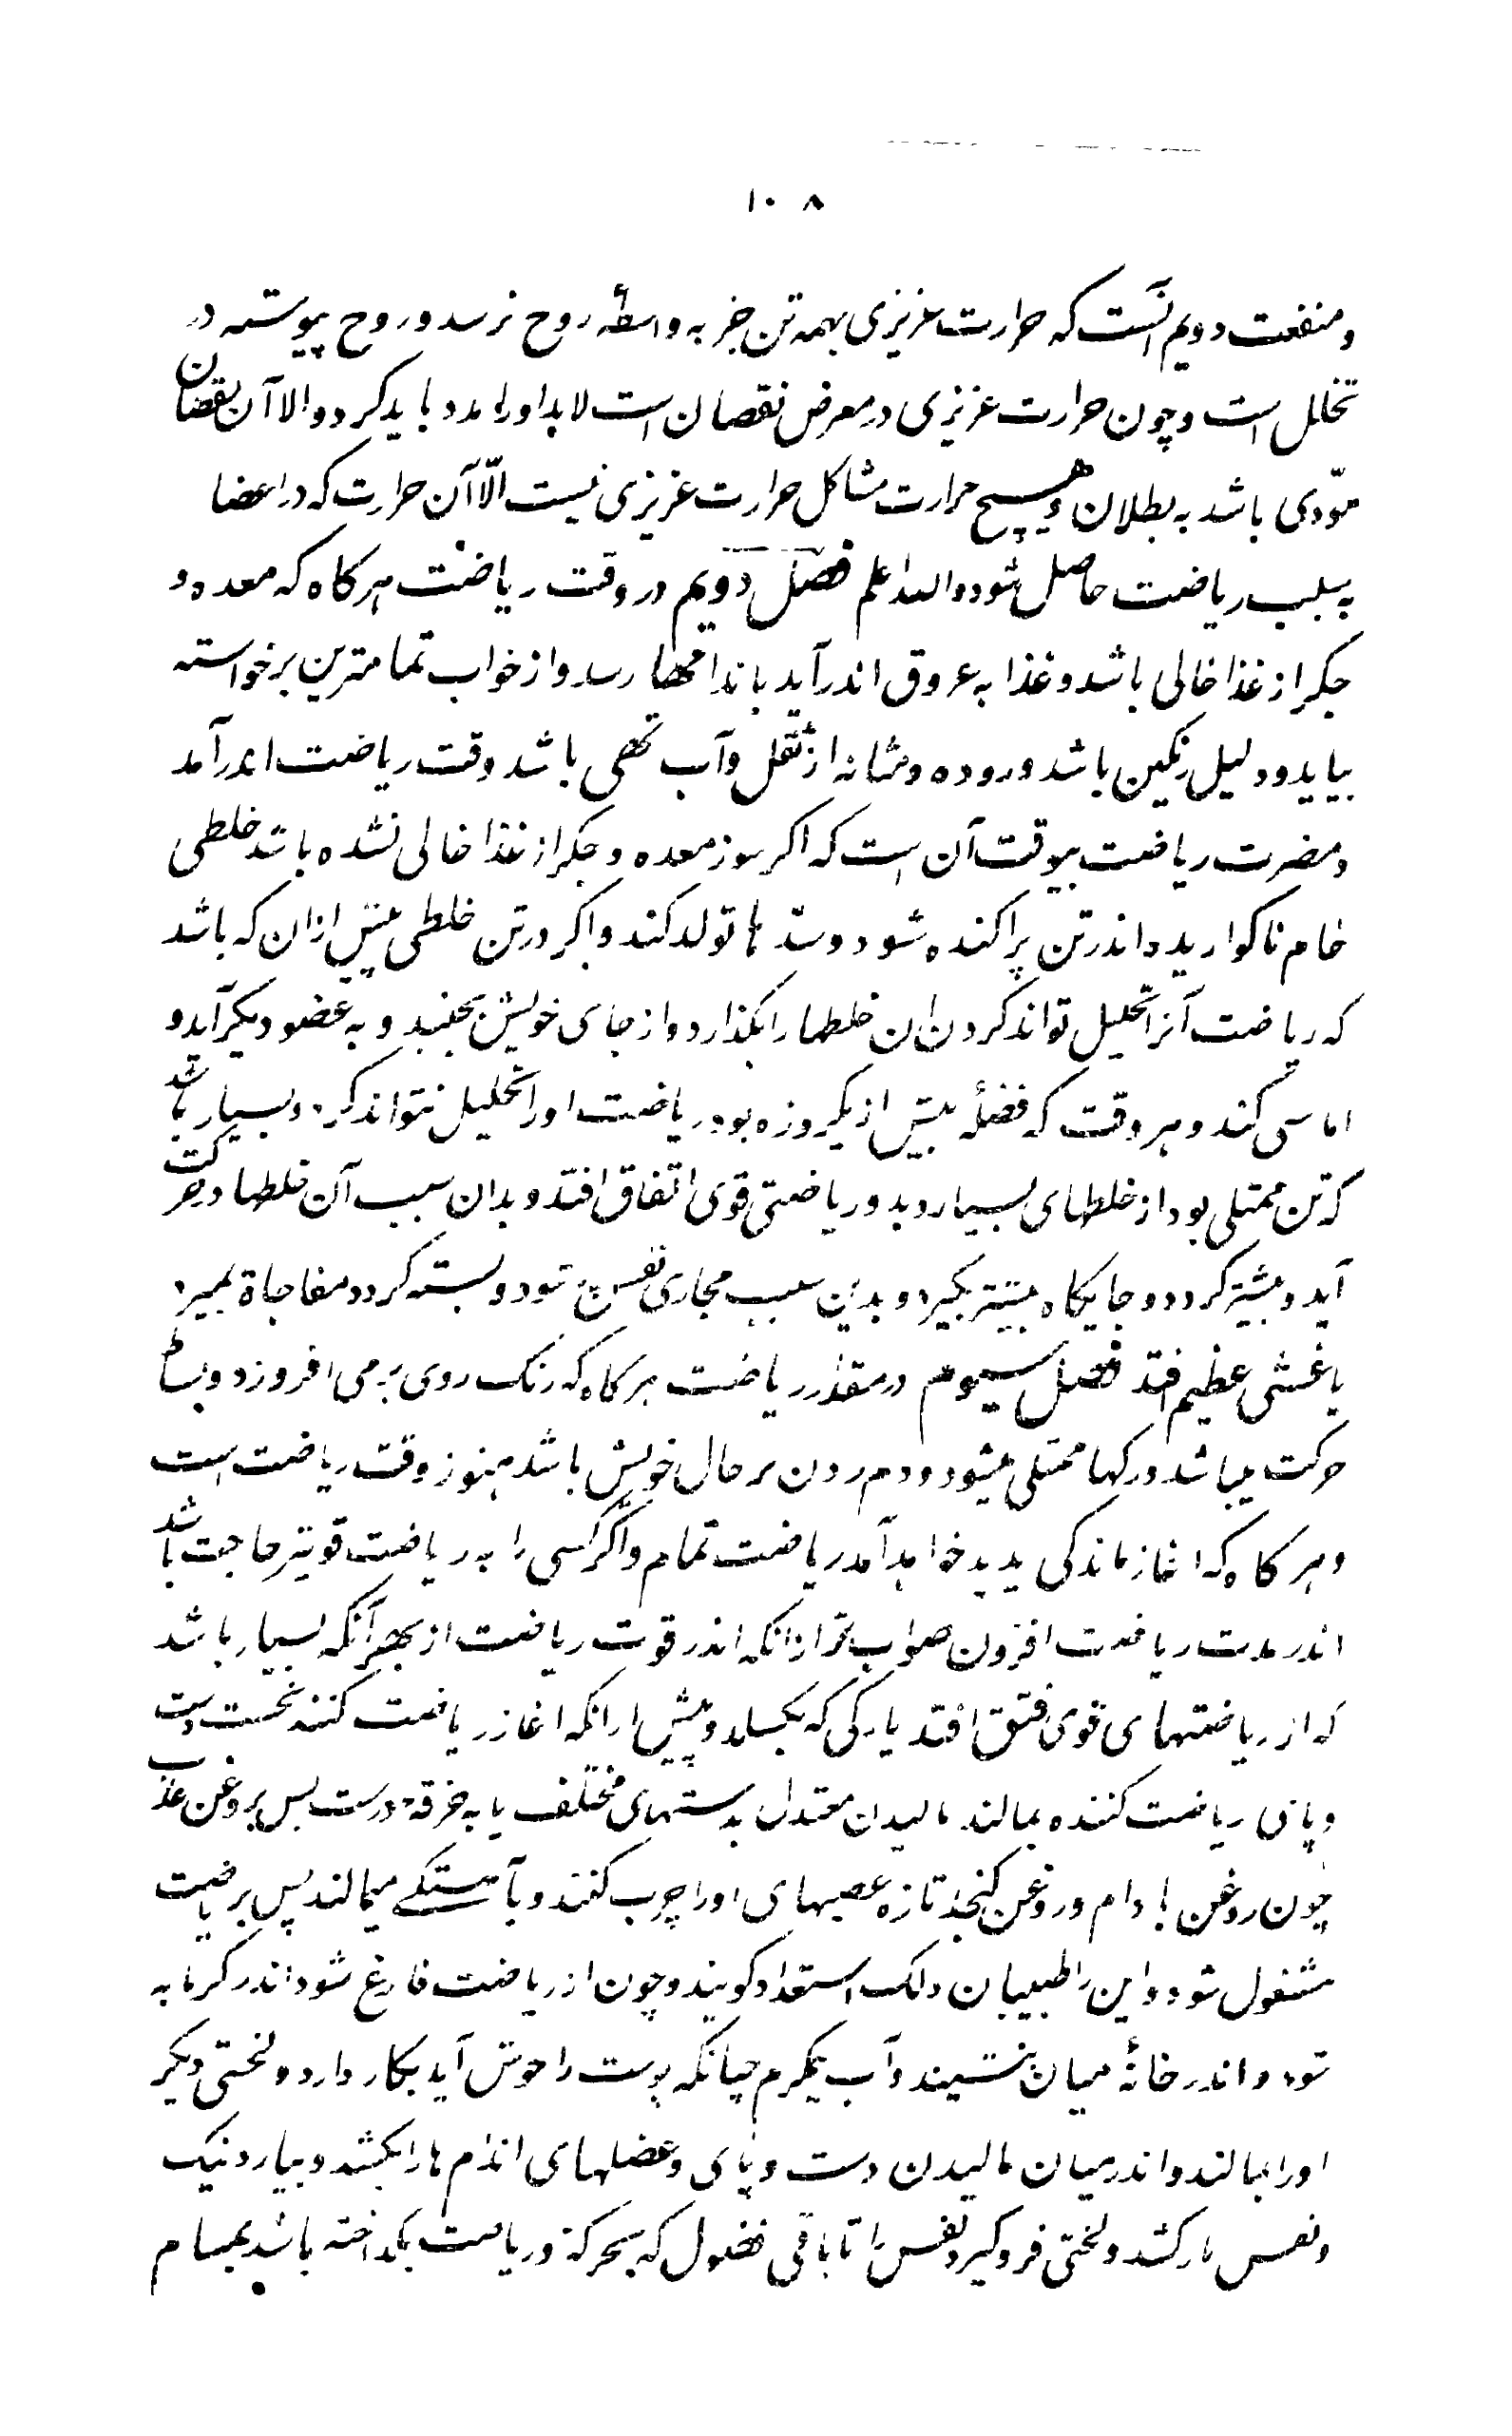 ۱۰۸
و منفعت دویم آنست که حرارت عزیزی بهمه تن جز به واسطهٔ روح نرسد و روح پیوسته در
تحلل است و چون حرارت عزیزی در معرض نقصان است لابد او را مدد باید کرد و الا آن نقصان
مؤدی باشد به بطلان و هیچ حرارت مشاکل حرارت عزیزی نیست الّا آن حرارت که در اعضا
به سبب ریاضت حاصل شود والله اعلم فصل دویم در وقت ریاضت هرکاه که معده و
جکر از غذا خالی باشد و غذا به عروق اندر آید باندامها رسد و از خواب تمامترین برخواسته
بیاید و دلیل رنکین باشد و روده و مثانه از ثقل و آب تهی باشد وقت ریاضت اندر آمد
و مضرت ریاضت بیوقت آن است که اکر هنوز معده و جکر از غذا خالی نشده باشد خلطی
خام ناکواریده اندر تن پراکنده شود و سدّها تولد کند و اکر در تن خلطی بیش ازان که باشد
که ریاضت آنرا تحلیل تواند کردن ان خلطها را بکذارد و از جای خویش بجنبد و به عضو دیکر آید و
اماسی کند و هر وقت که فضلهٔ بیش از یکروزه بود ریاضت او را تحلیل نتواند کرد و بسیار باشد
که تن ممتلی بود از خلطهای بسیار و بد و ریاضتی قوی اتفاق افتد و بدان سبب آن خلطها در حرکت
آید و بیشتر کردد و جایکاه بیشتر بکیرد و بدین سبب مجاری نفس شود و بسته کردد مفاجاة بمیرد
یا غشی عظیم افتد فصل سیوم در مقدار ریاضت هرکاه که رنک روی بر می افروزد و نشاط
حرکت میباشد و رکها ممتلی میشود و دم زدن بر حال خویش باشد هنوز وقت ریاضت است
و هرکاه که اغاز ماندکی پدید خواهد آمد ریاضت تمام و اکر کسی را به ریاضت قویتر حاجت باشد
اندر مدت ریاضت افزون صواب‌تر ازانکه اندر قوت ریاضت از بهر آنکه بسیار باشد
که از ریاضتهای قوی فتق افتد یا رکی که بکسلد و پیش ازانکه اغاز ریاضت کنند نخست دست
و پای ریاضت کننده بمالند مالیدن معتدل بدستهای مختلف یا به خرقهٔ درست پس بروغن عذب
چون روغن بادام و روغن کنجد تازه عصبهای او را چرب کنند و بآهستکی میمالند پس بریاضت
مشغول شود و این را طبیبان دلک استعداد کویند و چون از ریاضت فارغ شود اندر کرمابه
شود و اندر خانهٔ میان بنشیند و آب نیکرم چنانکه پوست را خوش آید بکار دارد و لختی دیکر
او را بمالند و اندر میان مالیدن دست و پای و عضلهای اندام ها را بکشد و بیارد نیک
و نفس باز کشد و لختی فرو کیرد نفس را تا باقی فضول که بحرکة و ریاضت بکداخته باشد بمسام